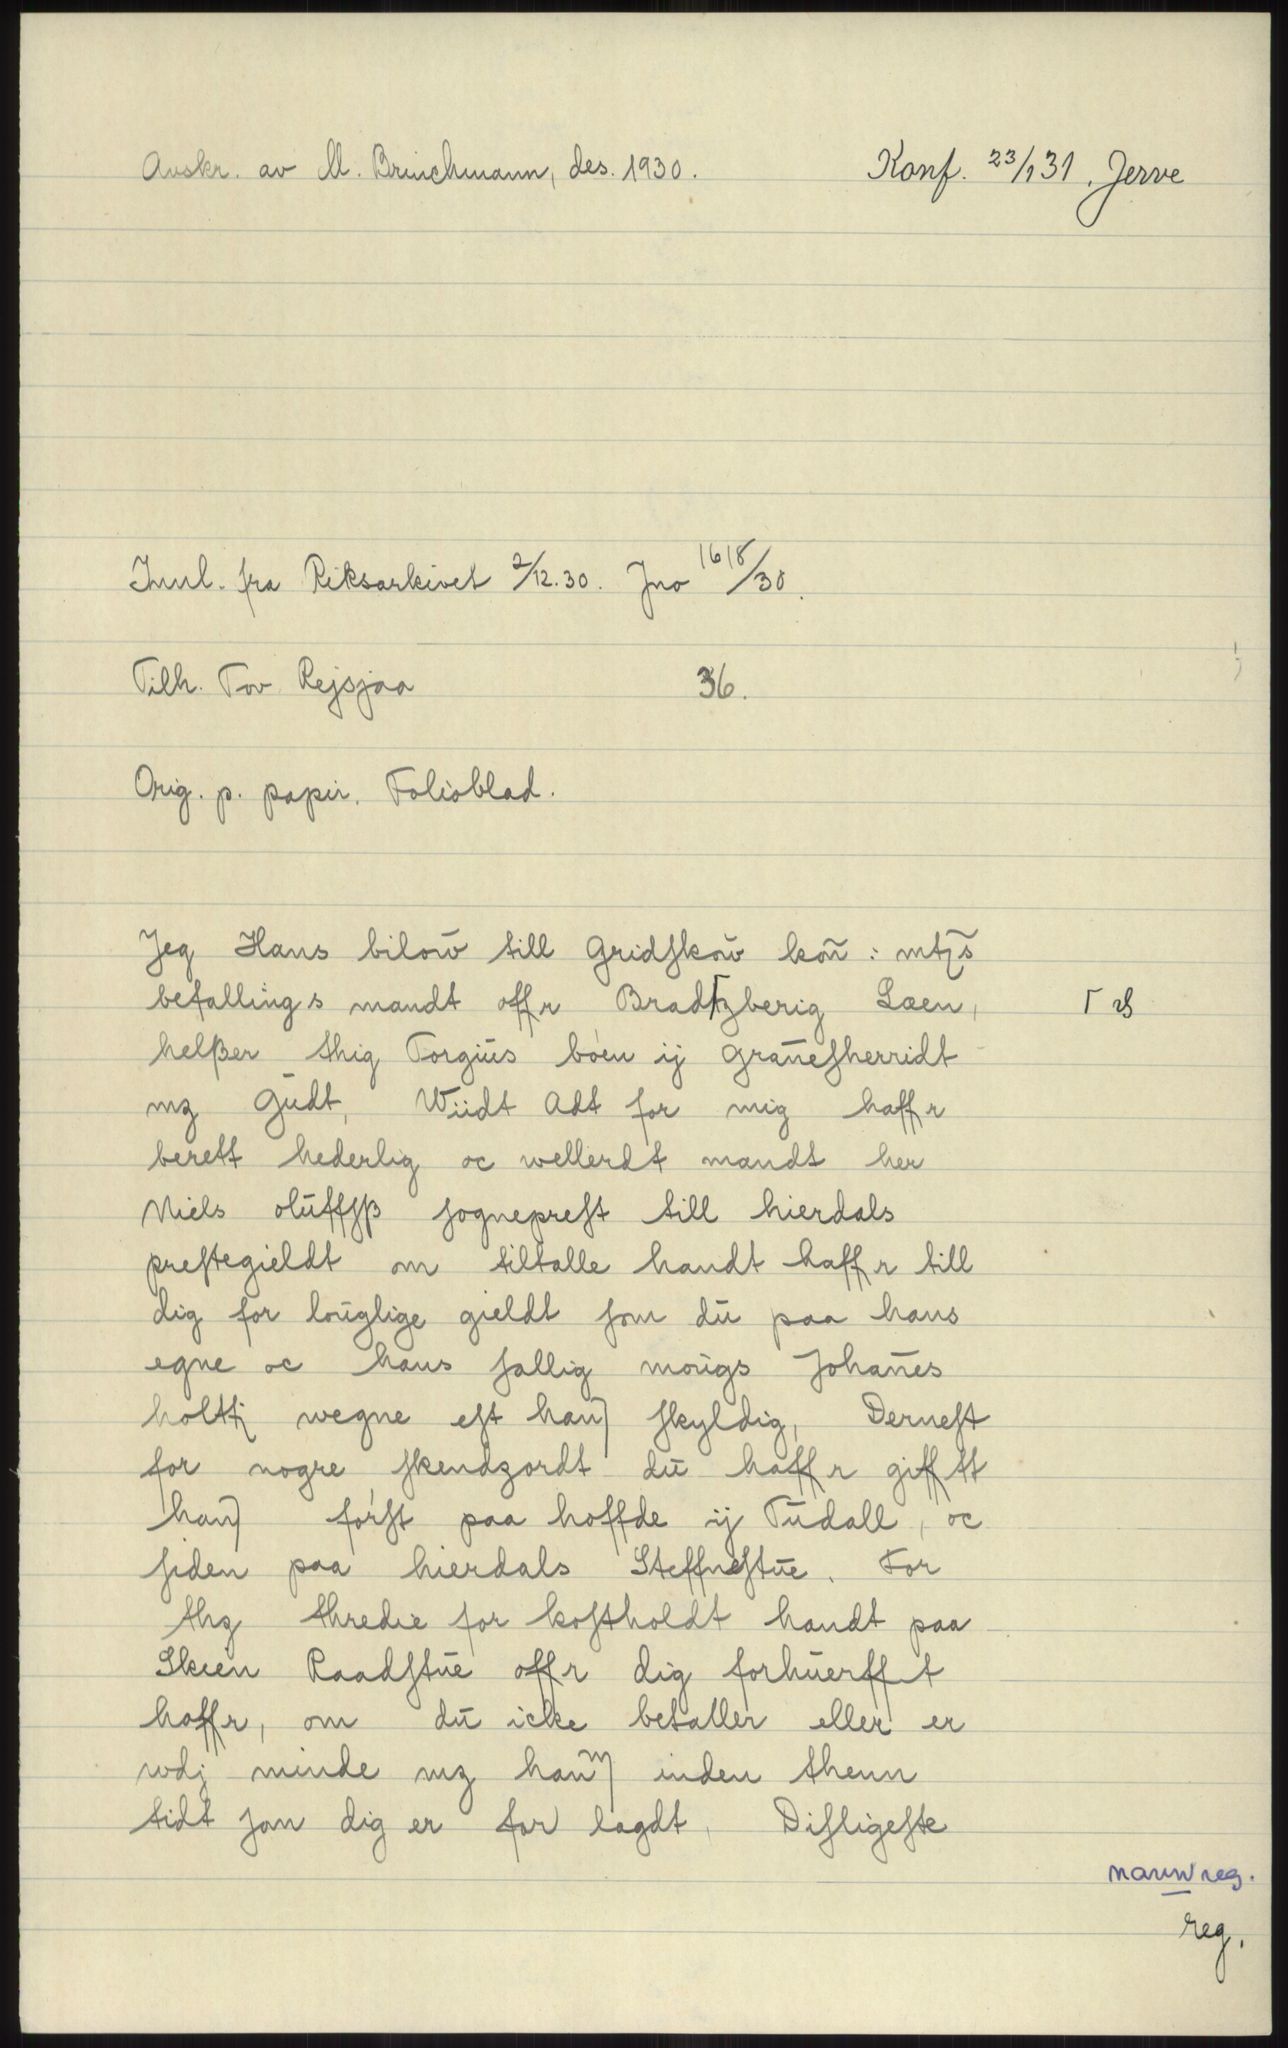 Avskr. av M. Brinchmann, des. 1930. Konf. 23/1 31. Jerve
Innl. fra Riksarkivet 2/12.30. Jno 1618/30.
Tilh. Tov Rejsjaa 36.
Orig. p. papir. Folioblad.
Jeg Hans bilow till Gridſkow kon̄: mtꝫs
befallings mandt offr Bradtzberig Læen, Γ ꝭ
helßer thig Torgius bóen ij Granesherridt
mꝫ Gudt, Wiidt Adt for mig haffr
berett hederlig oc wellerdt mandt her
Niels oluffſß ſogneprest till hierdals
preſtegieldt om tiltalle handt haffr till
dig for louglige gieldt ſom du paa hans
egne oc hans ſallig mougs Johanes
holtꝭ wegne eſt han) ſkyldig, Derneſt
for nogre ſkendzordt du haffr gifftt
han) fórſt paa hoffde ij Tudall, oc
ſiden paa hierdals Steffneſtue. For
thꝫ thredie for koſtholdt handt paa
Skien Raadſtue offr dig forhuerfft
haffr, om du icke betaller eller er
wdj minde mꝫ han) inden thenn
tidt ſom dig er for lagdt, Diſligeſte
navnreg.
reg.